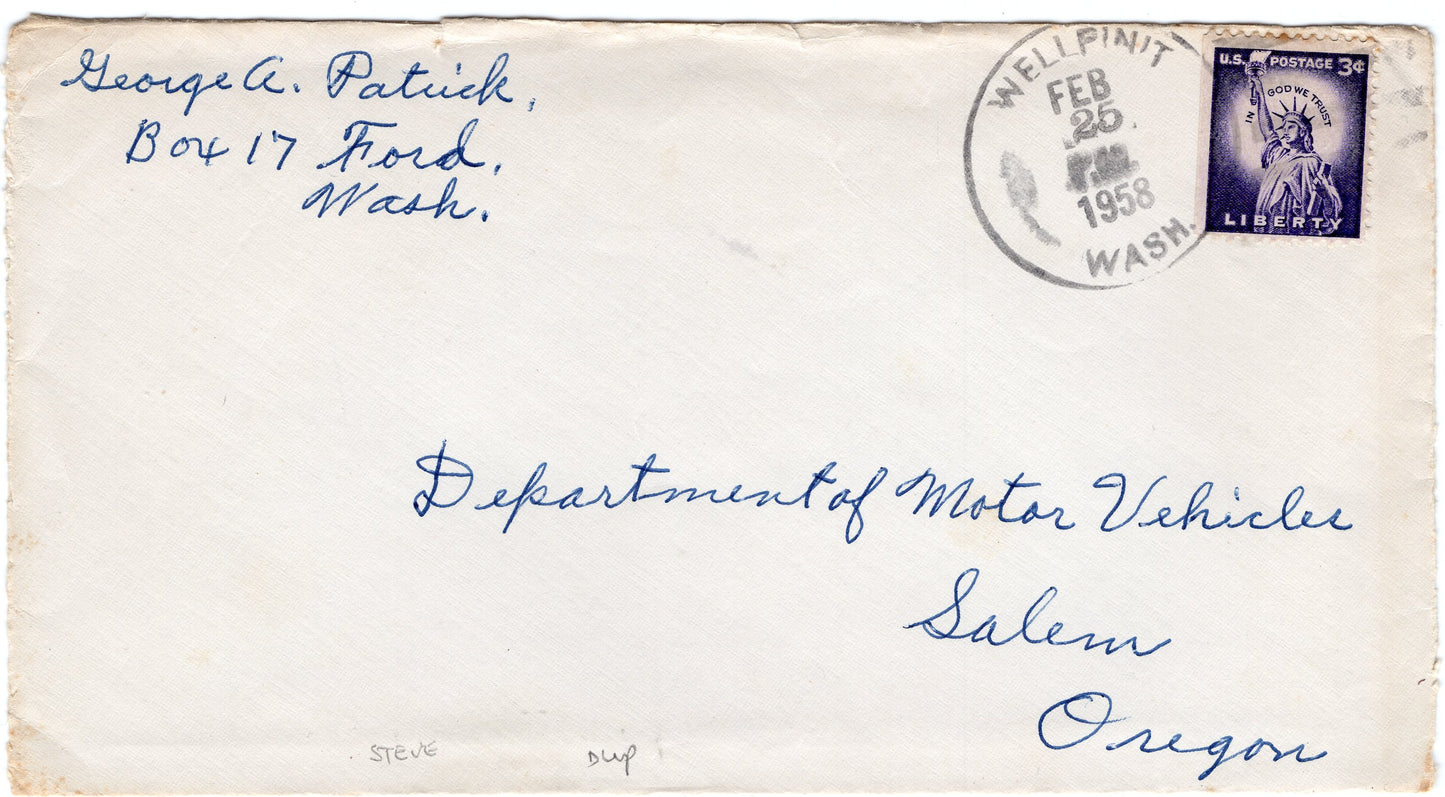 George A. Patrick,
Box 17 Ford,
Wash.
WELLPINIT
FEB
25
P.M.
1958
WASH.
U.S. POSTAGE 3¢
IN GOD WE TRUST
LIBERTY
Department of Motor Vehicles
Salem
Oregon
STEVE
Dup